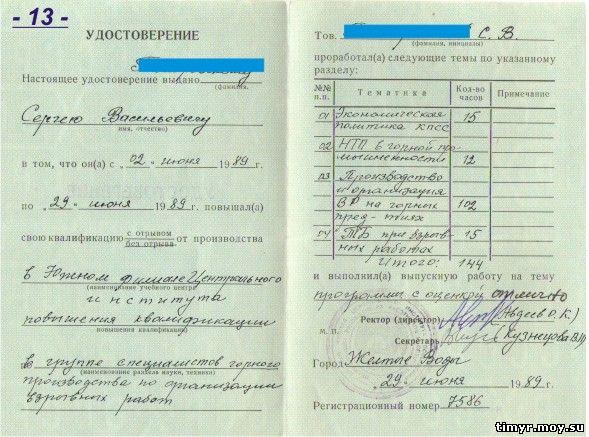 - 13 -
УДОСТОВЕРЕНИЕ
Настоящее удостоверение выдано
(фамилия,
Сергею Васильевичу
имя, отчество)
в том, что он(а) с „02„ июня 1989 г.
по „29„ июня 1989 г. повышал(а)
свою квалификацию с отрывом без отрыва от производства
в Южном филиале Центрального
(наименование учебного центра)
института
повышения квалификации
повышения квалификации)
в группе специалистов горного
(наименование раздела науки, техники)
производства по организации
взрывных работ
Тов. С. В.
(фамилия, инициалы)
проработал(а) следующие темы по указанному
разделу:
№№ п.п. Тематика Кол-во часов Примечание
01 Экономическая политика КПСС 15
02 НТП в горной промышленности 12
03 Производство и организация ВР на горных пред-тиях 102
04 ТБ при взрывных работах 15
Итого: 144
и выполнил(а) выпускную работу на тему
программы с оценкой отлично
Ректор (директор) (Авдеев О.К.)
М. П.
Секретарь (Кузнецова В.М)
Город Желтые Воды
„29„ июня 1989 г.
Регистрационный номер 7586
timyr.moy.su